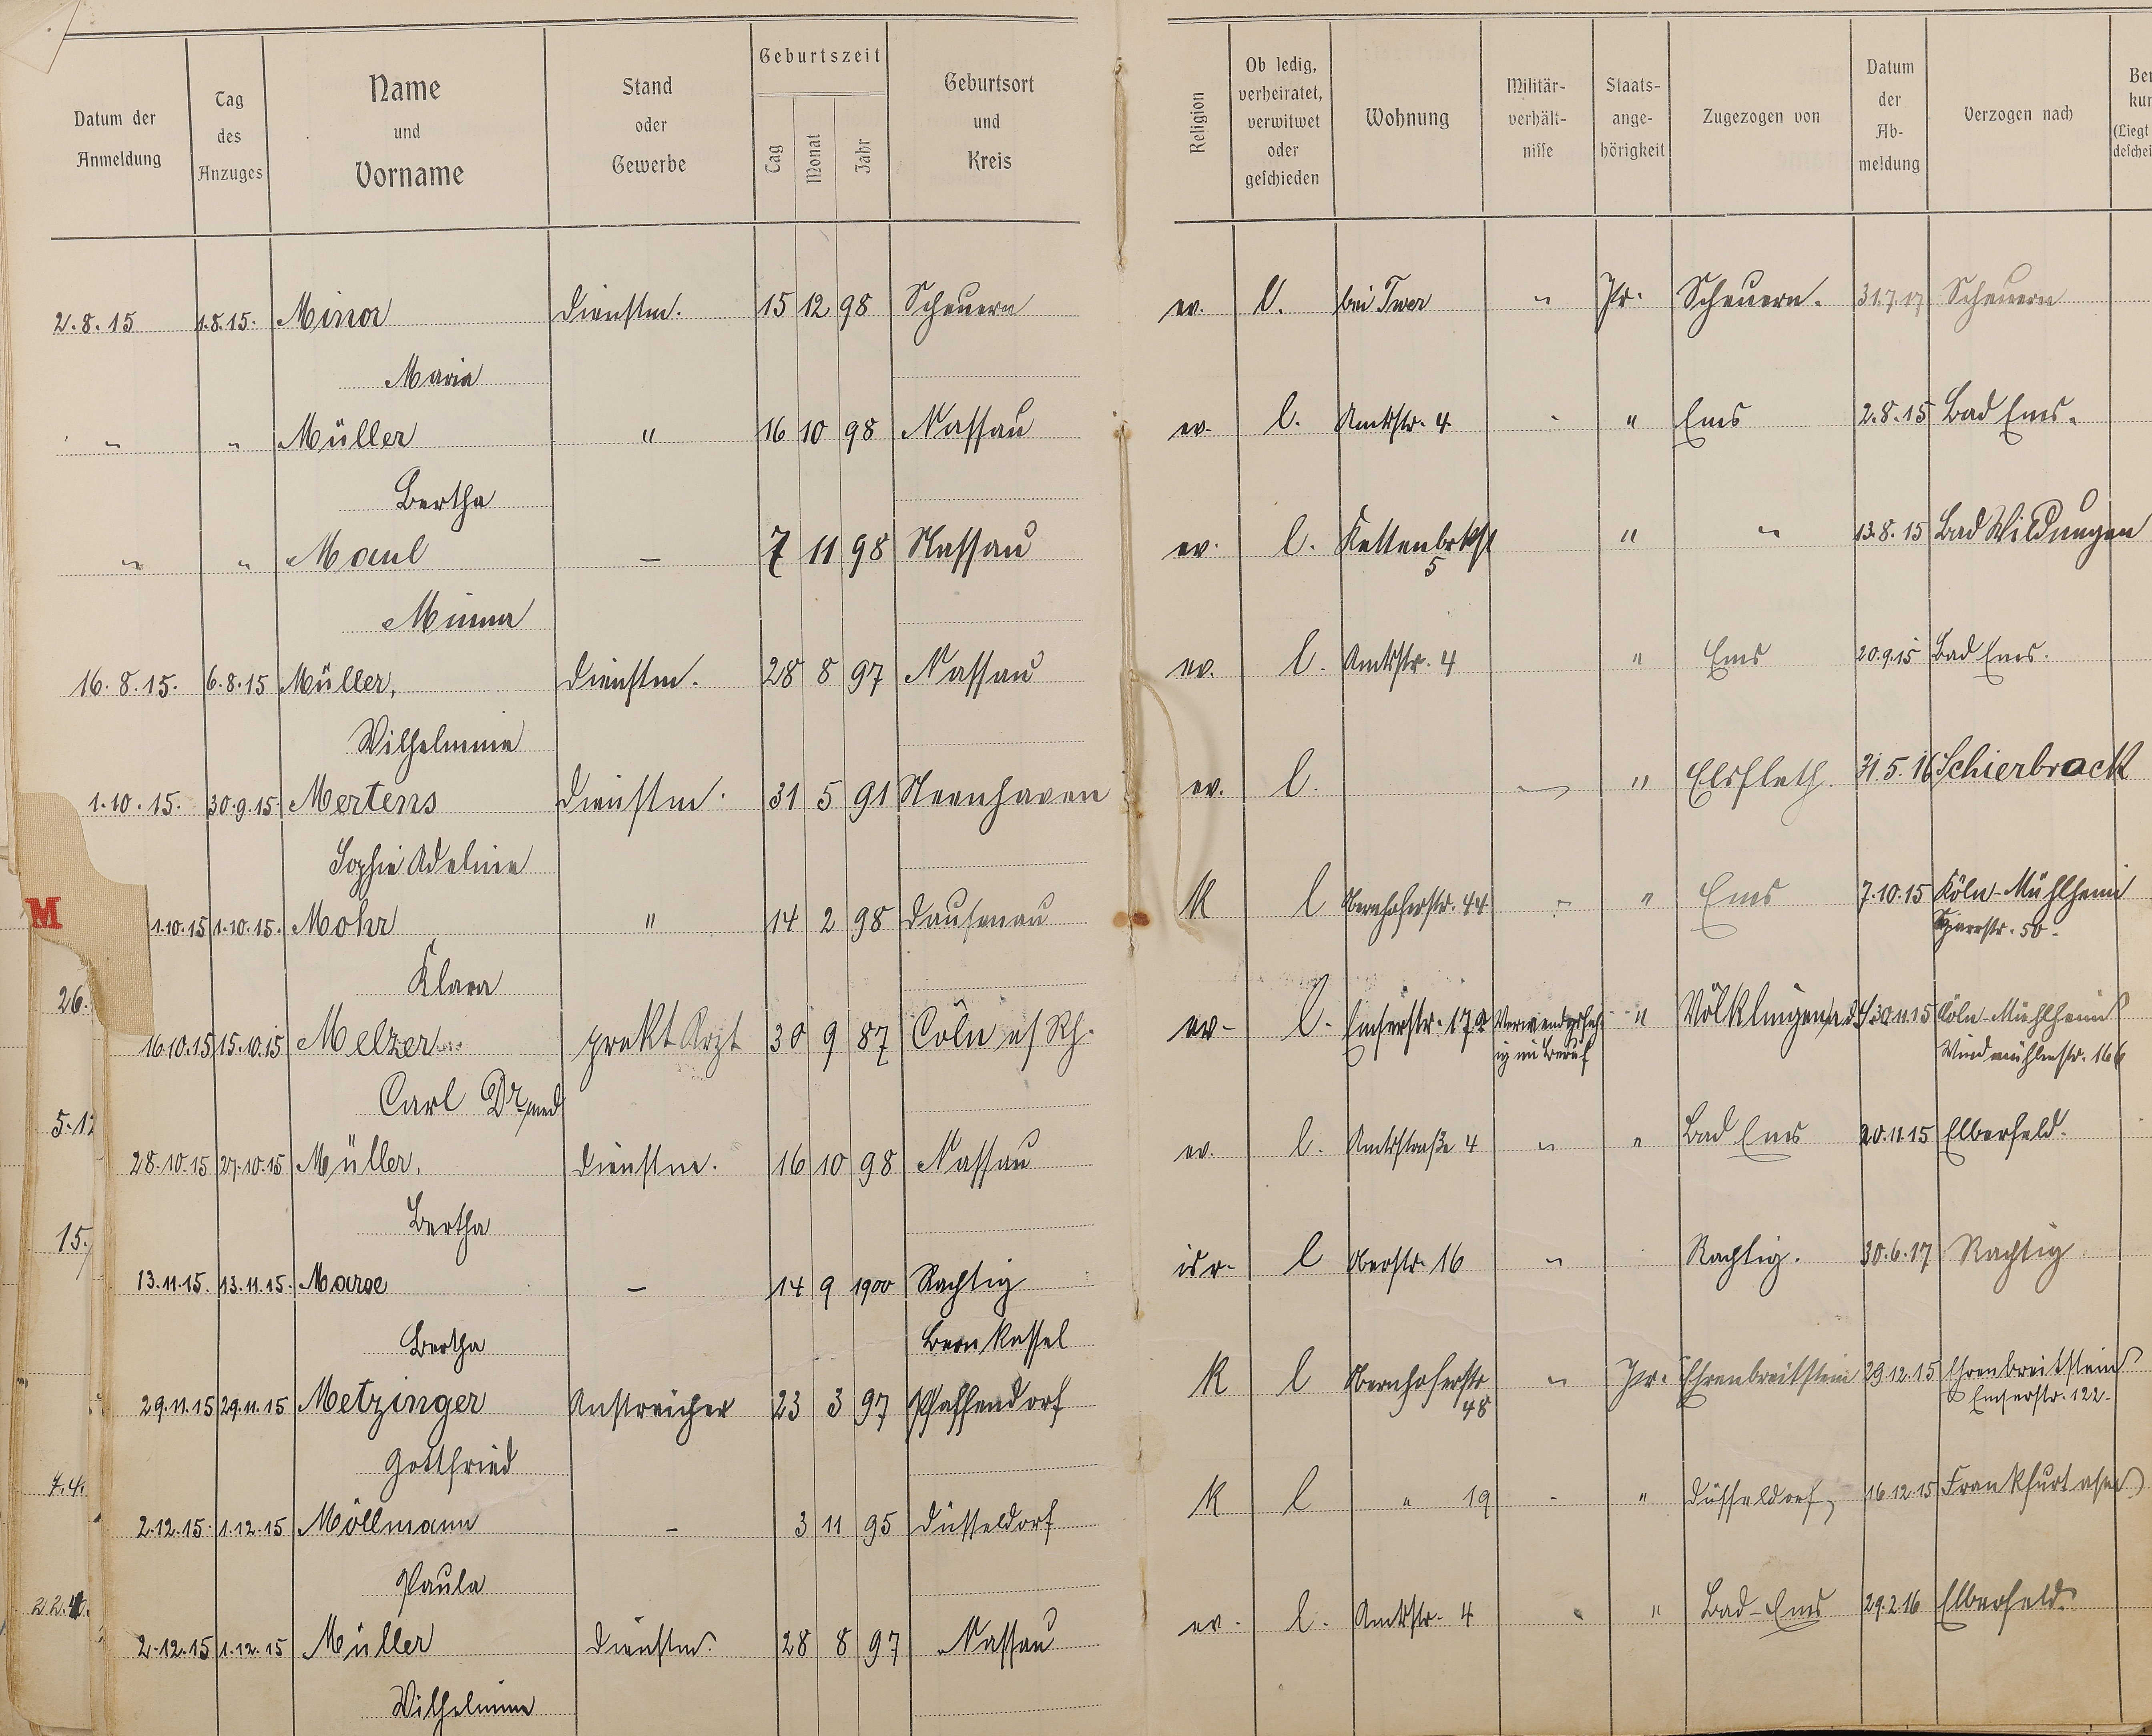 Datum der Anmeldung | Tag des Anzuges | Name und Vorname | Stand oder Gewerbe | Geburtszeit Tag Monat Jahr | Geburtsort und Kreis | Religion | Ob ledig, verheiratet, verwitwet oder geschieden | Wohnung | Militär-verhält-nisse | Staats-ange-hörigkeit | Zugezogen von | Datum der Ab-meldung | Verzogen nach
2.8.15 | 1.8.15. | Minor | Dienstm. | 15 | 12 | 98 | Scheuern | ev. | l. | bei | " | Pr. | Scheuern. | 31.7.17 | Scheuern
Maria
" | " | Müller | " | 16 | 10 | 98 | Nassau | ev. | l. | Amtstr. 4 | - | " | Ems | 2.8.15 | Bad Ems.
Bertha
" | " | Maul | — | 7 | 11 | 98 | Nassau | ev. | l. | Kettenbrkst | " | " | 13.8.15 | Bad Wildungen
5
Minna
16.8.15. | 6.8.15 | Müller, | Dienstm. | 28 | 8 | 97 | Nassau | ev. | l. | Amtstr. 4 | " | Ems | 20.9.15 | Bad Ems.
Wilhelmine
1.10.15. | 30.9.15. | Mertens | Dienstm. | 31 | 5 | 91 | Neenhaven | ev. | l. | " | " | Elsfleth. | 31.5.16 | Schierbrock
Sophie Adeline
M
1.10.15 | 1.10.15. | Mohr | " | 14 | 2 | 98 | Dausenau | K | l | Obernhoferstr. 44 | " | " | Ems | 7.10.15 | Köln-Mühlheim
50.
Klara
26.
16.10.15 | 15.10.15 | Melzer | prakt Arzt | 30 | 9 | 87 | Cöln a/Rh. | ev. | l. | Emserstr. | Verwendgsfäh- | " | Völklingen a.d.S. | 30.11.15 | Cöln-Mühlheim
ig im Beruf | Windmühlenstr. 166
Carl Dr. med
5.12
28.10.15 | 27.10.15 | Müller, | Dienstm. | 16 | 10 | 98 | Nassau | ev. | l. | Amtstraße 4 | " | " | Bad Ems | 20.11.15 | Elberfeld.
Bertha
15.
13.11.15. | 13.11.15. | Marse | — | 14 | 9 | 1900 | Rachtig | isr. | l | Oberstr. 16 | " | Rachtig. | 30.6.17 | Rachtig
Bertha | Bernkassel
29.11.15 | 29.11.15 | Metzinger | Anstreicher | 23 | 3 | 97 | Pfaffendorf | K | l | Obernhoferstr | " | Pr. | Ehrenbreitstein | 29.12.15 | Ehrenbreitstein
48 | Emserstr. 122.
Gottfried
7.4.
2.12.15. | 1.12.15 | Möllmann | — | 3 | 11 | 95 | Düsseldorf | K | l | " 19 | - | " | Düsseldorf, | 16.12.15 | Frankfurt a/M
Paula
22.4.
2.12.15 | 1.12.15 | Müller | Dienstm. | 28 | 8 | 97 | Nassau | ev. | l. | Amtstr. 4 | " | Bad-Ems | 29.2.16 | Elberfeld.
Wilhelmine